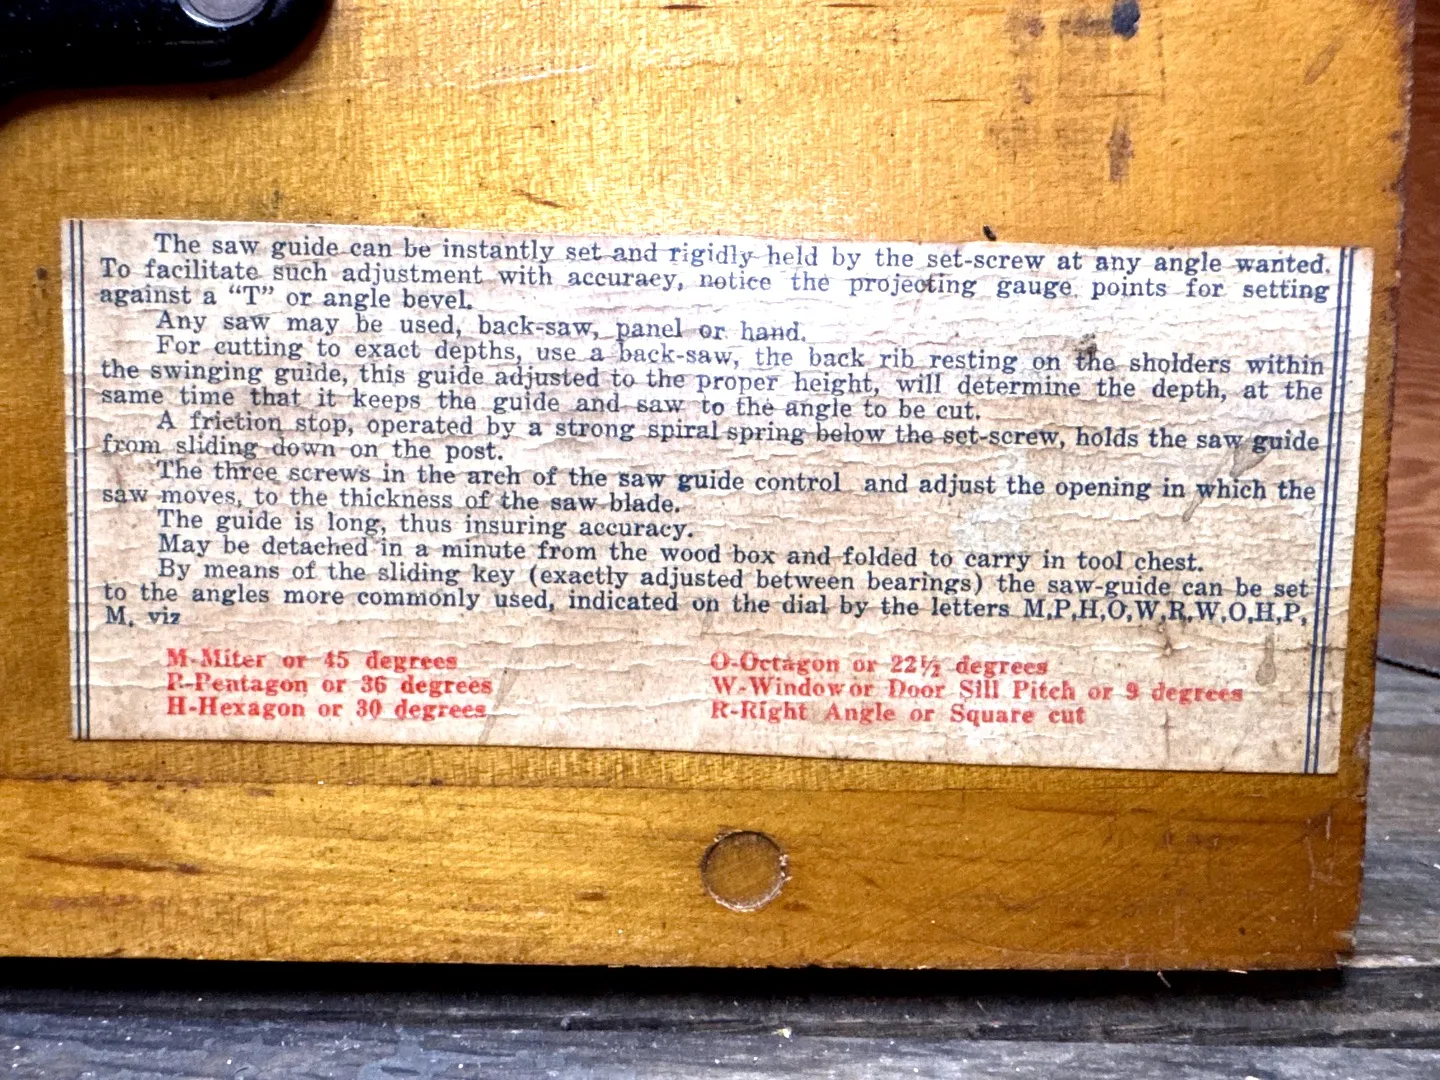 The saw guide can be instantly set and rigidly held by the set-screw at any angle wanted.
To facilitate such adjustment with accuracy, notice the projecting gauge points for setting
against a “T” or angle bevel.
Any saw may be used, back-saw, panel or hand.
For cutting to exact depths, use a back-saw, the back rib resting on the sholders within
the swinging guide, this guide adjusted to the proper height, will determine the depth, at the
same time that it keeps the guide and saw to the angle to be cut.
A friction stop, operated by a strong spiral spring below the set-screw, holds the saw guide
from sliding down on the post.
The three screws in the arch of the saw guide control and adjust the opening in which the
saw moves, to the thickness of the saw blade.
The guide is long, thus insuring accuracy.
May be detached in a minute from the wood box and folded to carry in tool chest.
By means of the sliding key (exactly adjusted between bearings) the saw-guide can be set
to the angles more commonly used, indicated on the dial by the letters M,P,H,O,W,R,W,O,H,P,
M, viz
M-Miter or 45 degrees
P-Pentagon or 36 degrees
H-Hexagon or 30 degrees
O-Octagon or 22½ degrees
W-Window or Door Sill Pitch or 9 degrees
R-Right Angle or Square cut